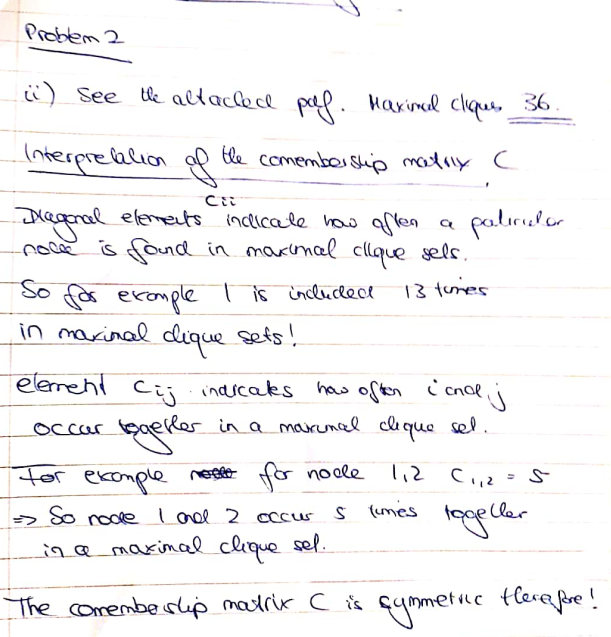 Problem 2
ii) See the attached pdf. Maximal cliques 36.
Interpretation of the comembership matrix C
Cii
Diagonal elements indicate how often a particular
node is found in maximal clique sets.
So for example 1 is included 13 times
in maximal clique sets!
element Cij indicates how often i and j
occur together in a maximal clique set.
For example for node 1,2 C1,2 = 5
=> So node 1 and 2 occur 5 times together
in a maximal clique set.
The comembership matrix C is symmetric therefore!